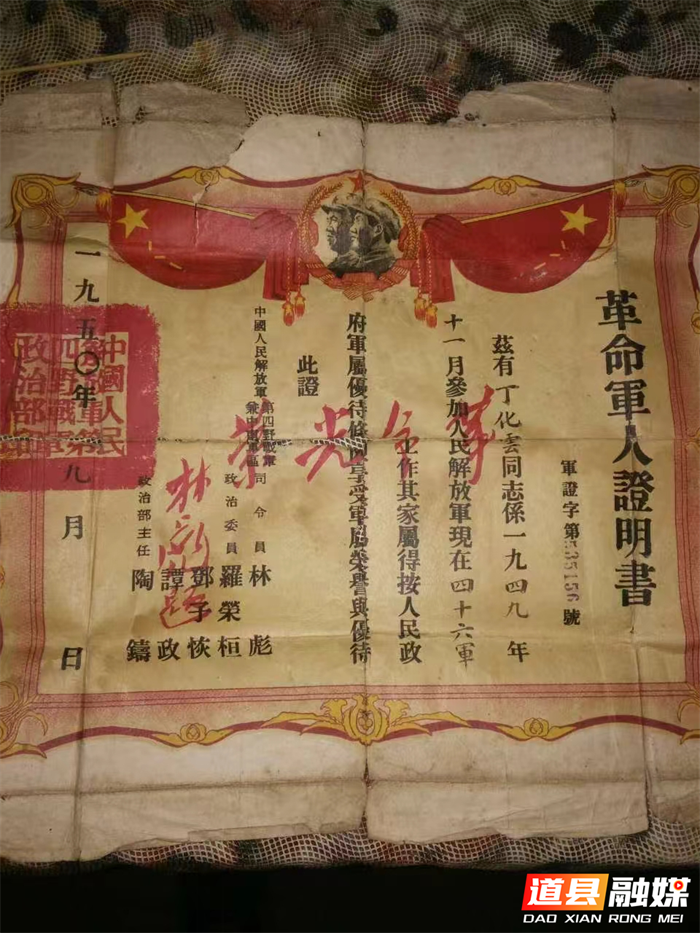 革命軍人證明書
軍證字第535156號
茲有丁化雲同志係一九四九年
十一月參加人民解放軍現在四十六軍
工作其家屬得按人民政
府軍屬優待條例享受軍屬榮譽與優待
此證
光榮
全
林彪題
中國人民解放軍第四野戰軍兼中南軍區司令員 林彪
政治委員 羅榮桓
鄧子恢
譚政
政治部主任 陶鑄
一九五〇年九月 日
中國人民
解放軍第
四野戰軍
政治部印
道县融媒
DAO XIAN RONG MEI